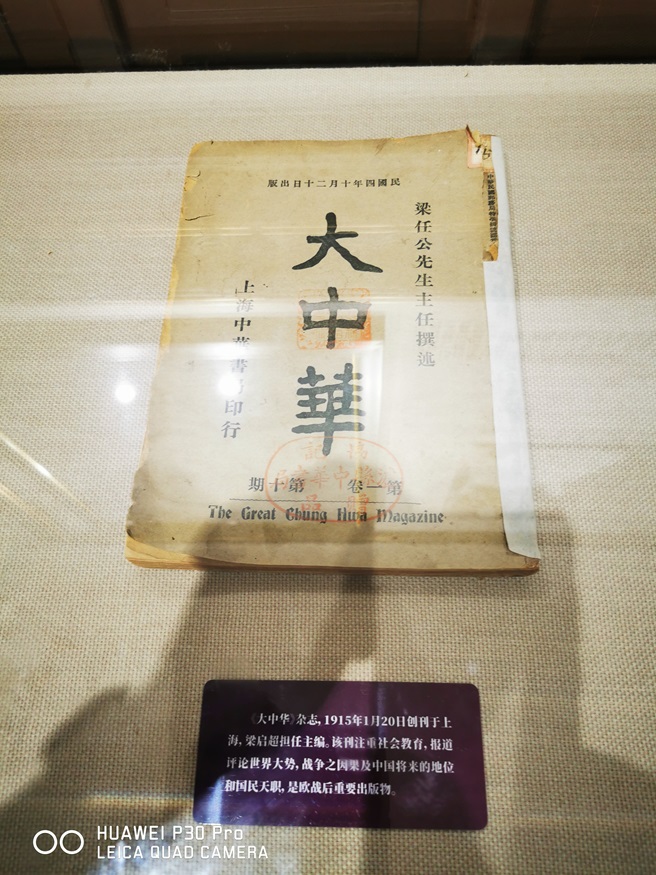 民國四年十月二十日出版
梁任公先生主任撰述
大中華
上海中華書局印行
第一卷 第十期
The Great Chung Hwa Magazine
15
《大中华》杂志, 1915年1月20日创刊于上
海, 梁启超担任主编。该刊注重社会教育, 报道
评论世界大势, 战争之因果及中国将来的地位
和国民天职, 是欧战后重要出版物。
HUAWEI P30 Pro
LEICA QUAD CAMERA